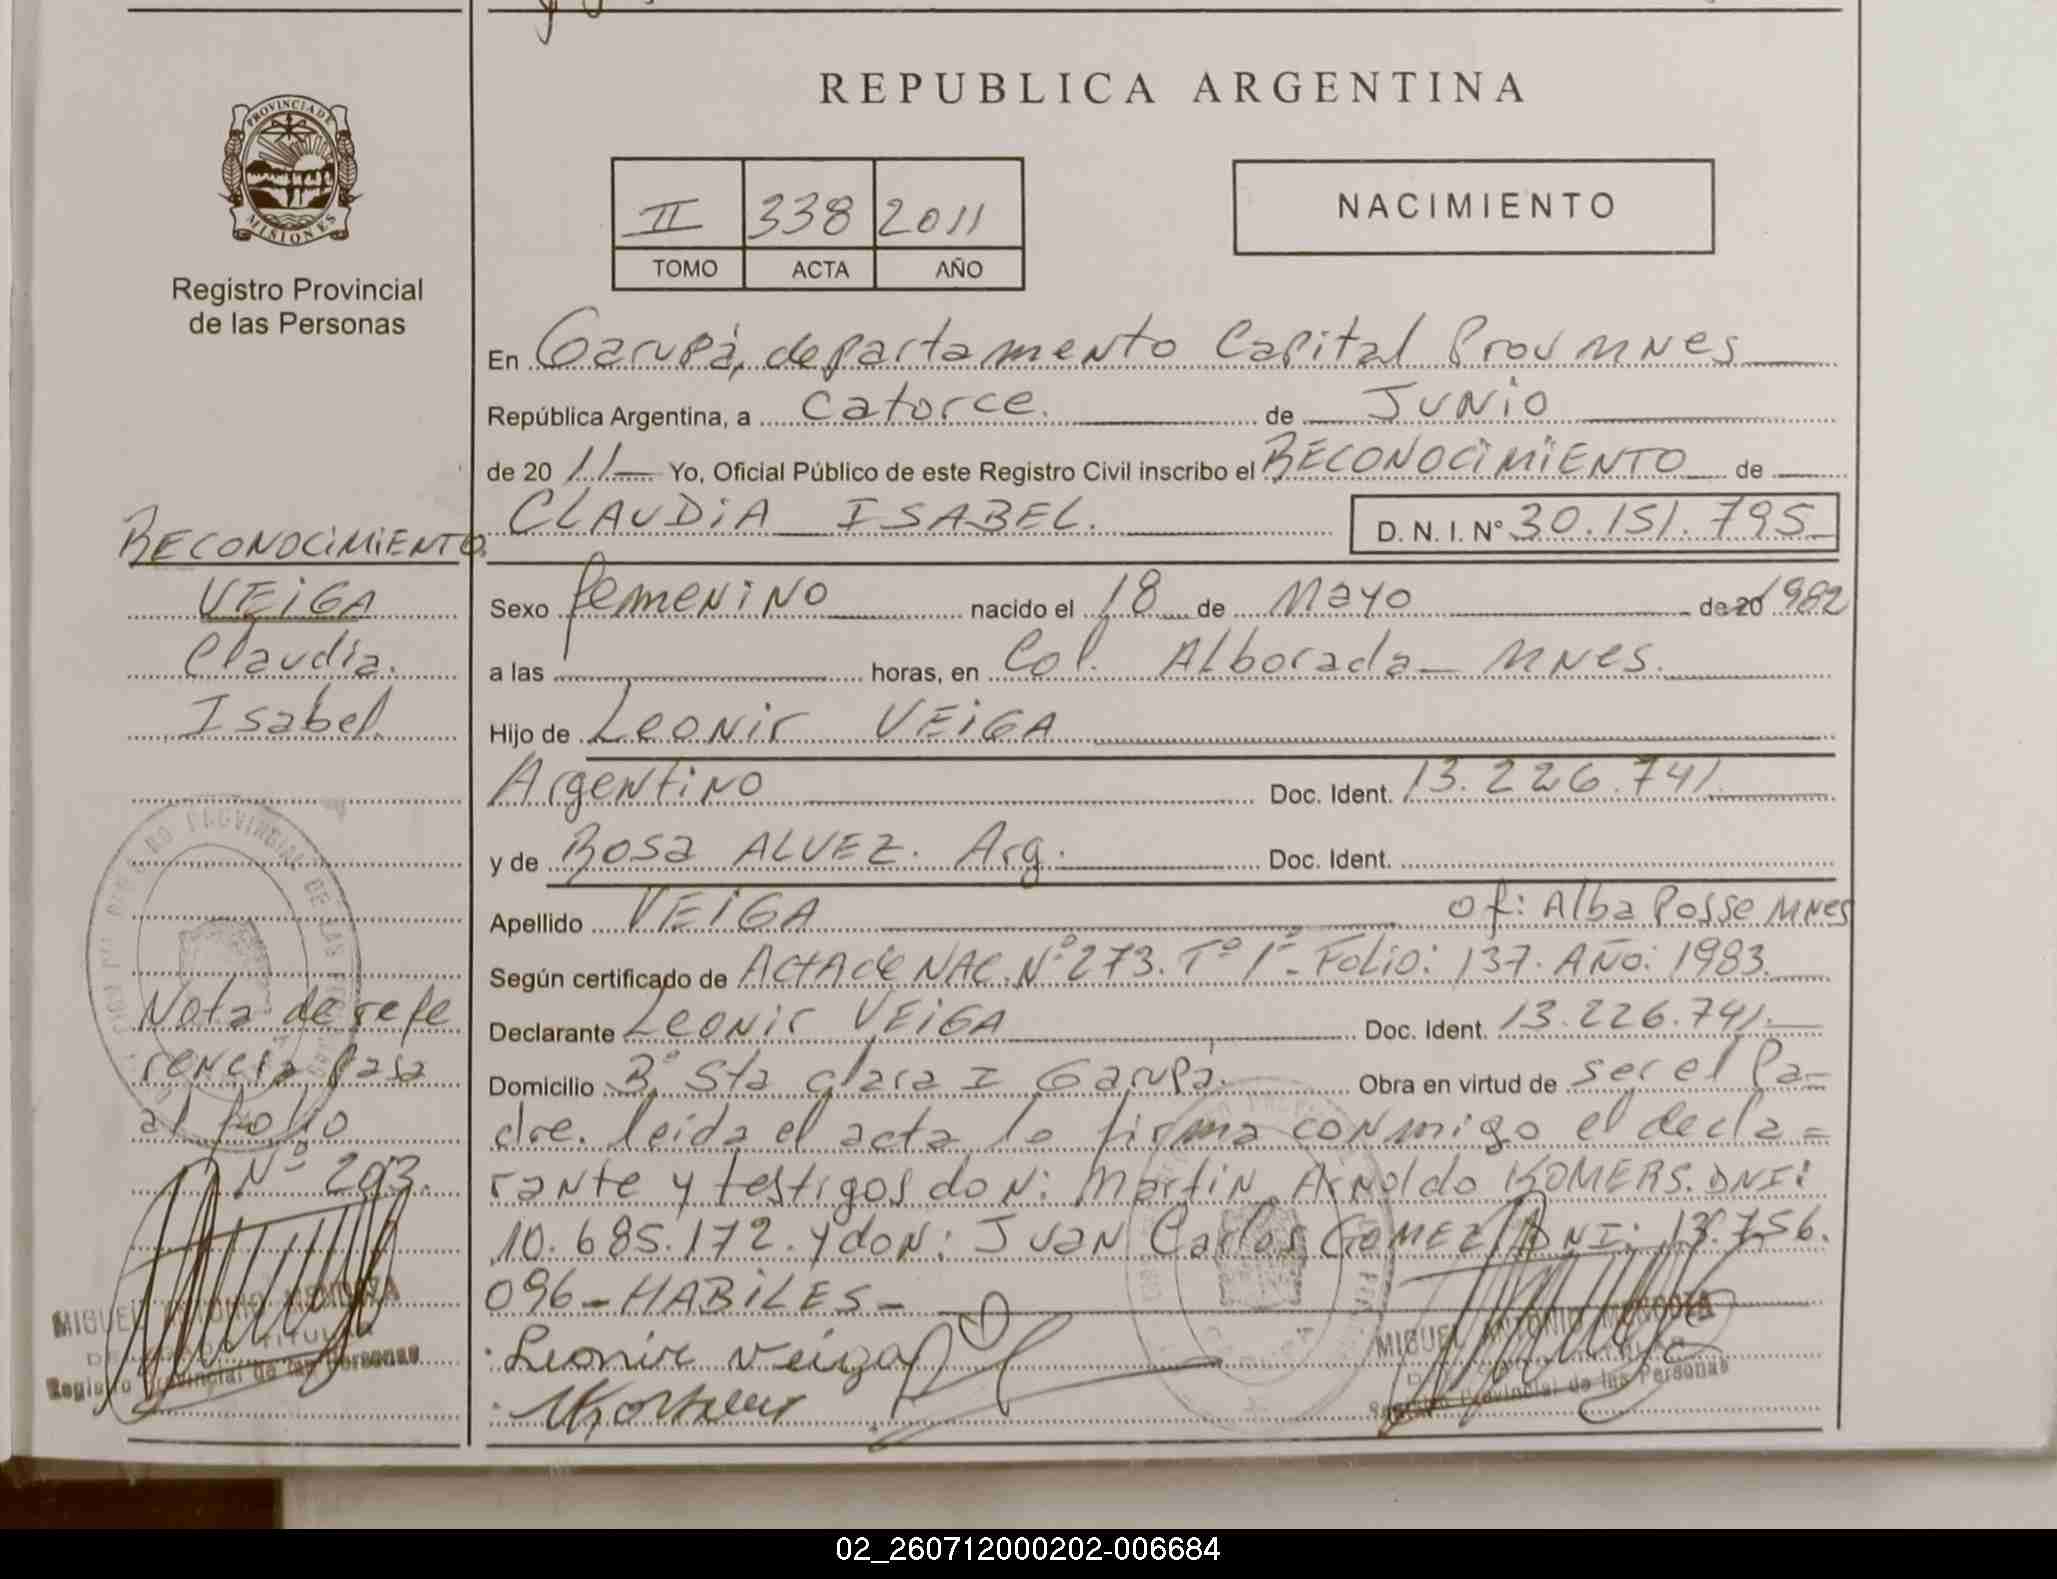 REPUBLICA ARGENTINA
PROVINCIA DE
MISIONES
Registro Provincial
de las Personas
II 338 2011
TOMO ACTA AÑO
NACIMIENTO
En Garupá, departamento Capital Prov MNes
República Argentina, a catorce. de JUNIO
de 20 11 Yo, Oficial Público de este Registro Civil inscribo el RECONOCIMIENTO de
CLAUDIA ISABEL. D. N. I. Nº 30.151.795
Sexo femenino nacido el 18 de Mayo de 20 1982
a las horas, en Col. Alborada - MNes.
Hijo de Leonir VEIGA
Argentino Doc. Ident. 13.226.741
y de Rosa ALVEZ. Arg. Doc. Ident.
Apellido VEIGA of: Alba Posse MNes
Según certificado de Acta de NAC. Nº 273. Tº 1º- Folio: 137. Año: 1983.
Declarante Leonir VEIGA Doc. Ident. 13.226.741.
Domicilio Bº Sta clara I Garupá. Obra en virtud de ser el Pa-
dre. leida el acta lo firma conmigo el decla=
rante y testigos don: Martin Arnoldo KOMERS. DNI:
10.685.172. y don: Juan Carlos GOMEZ DNI: 13.756.
096 - HABILES -
Leonir Veiga
MIGUEL ANTONIO MENDOZA
Registro Provincial de las Personas
RECONOCIMIENTO.
VEIGA
Claudia.
Isabel.
Nota de refe
rencia pasa
al folio
Nº 203.
MIGUEL ANTONIO MENDOZA
TITULAR
Registro Provincial de las Personas
02_260712000202-006684